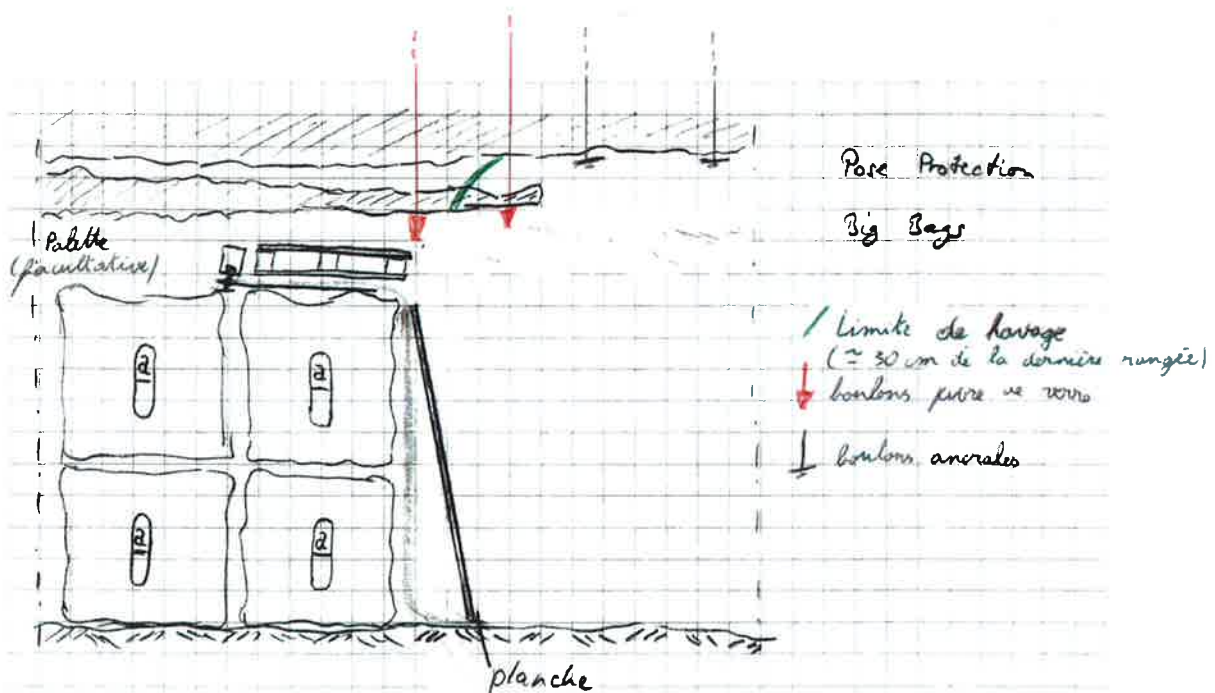 Pose Protection
Big Bags
Palette
(facultative)
a
a
a
a
Limite de havage
(≃ 50 cm de la dernière rangée)
boulons
boulons ancrales
planche